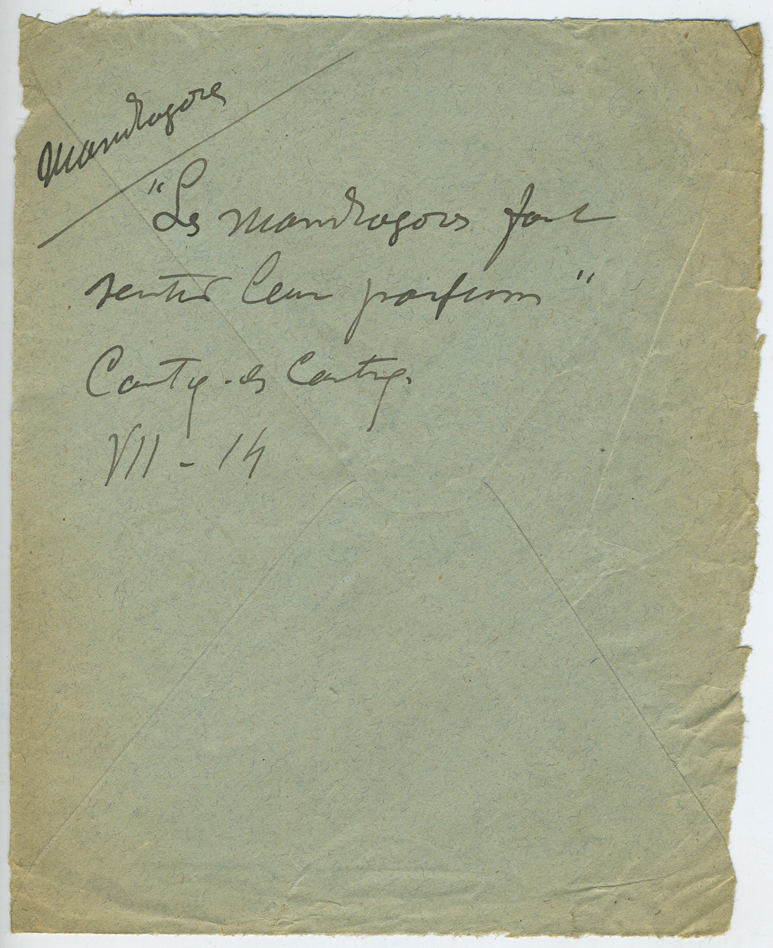 Mandragores
"Les mandragores font
sentir leur parfum"
Cantiq. des Cantiq.
VII - 14